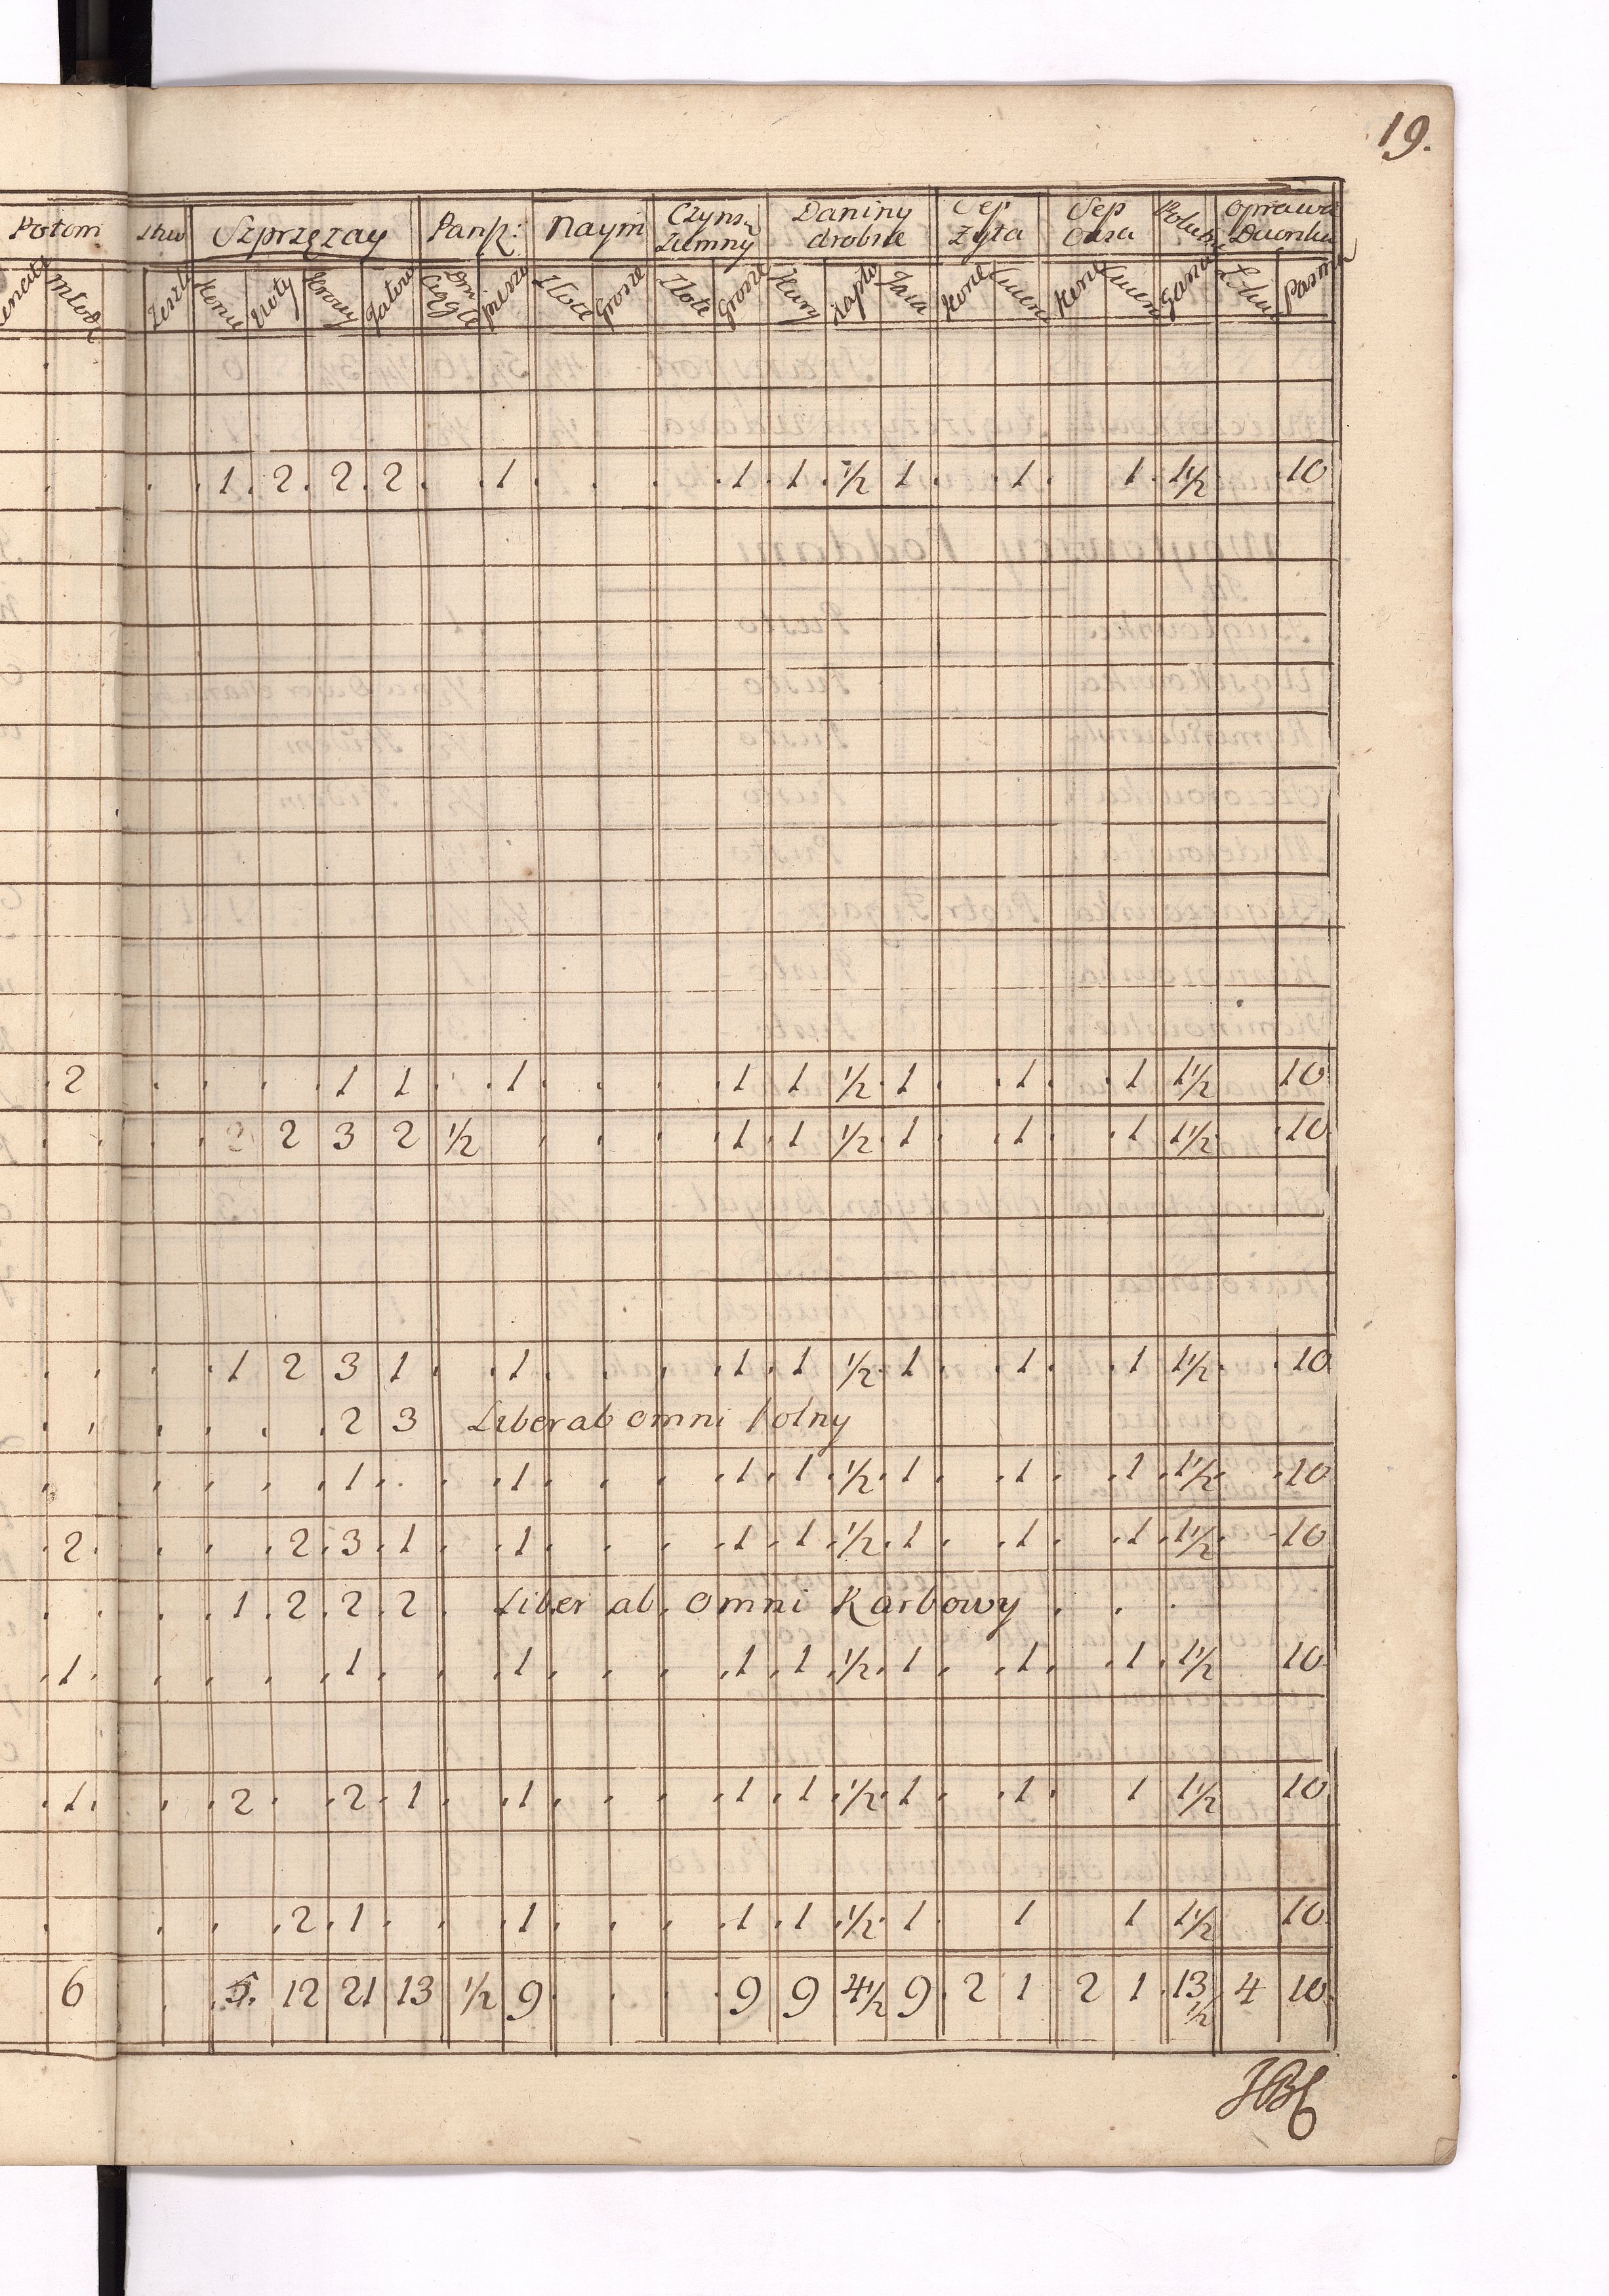 19.
Potom Sprzężay Pańsz: Naym Czynsz Ziemny Daniny drobne Sep Żyta Sep Owsa Oprawa
Konie Woły Krowy Ciągłe piesze Złote Grosze Złote Grosze Kury Jaja Pasma
1 2 2 2 1 1 1 ½ 1 1 1 1½ 10
2 1 1 1 1 1 ½ 1 1 1 1½ 10
2 2 3 2 ½ 1 1 ½ 1 1 1 1½ 10
1 2 3 1 1 1 1 ½ 1 1 1 1½ 10
2 3 Liber ab omni
1 1 1 1 ½ 1 1 1 1½ 10
2 2 3 1 1 1 1 ½ 1 1 1 1½ 10
1 2 2 2 Liber ab omni Karbowy
1 1 1 1 1 ½ 1 1 1 1½ 10
1 2 2 1 1 1 1 ½ 1 1 1 1½ 10
2 1 1 1 1 ½ 1 1 1 1½ 10
6 5 12 21 13 ½ 9 9 9 4½ 9 2 1 2 1 13½ 4 10